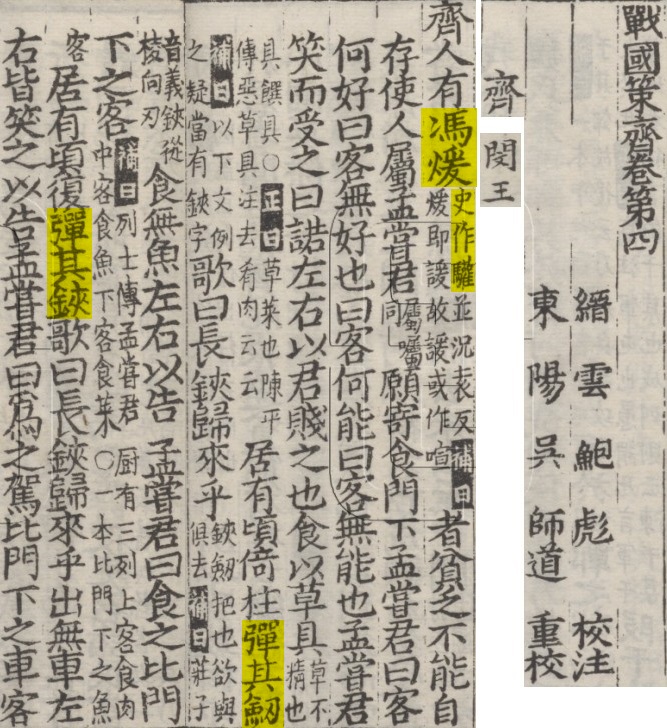 戰國策齊卷第四
縉雲鮑彪校注
東陽吳師道重校
齊
閔王
齊人有馮煖史作驩並況表反補曰煖即諼故諼或作喧者貧乏不能自
存使人屬孟嘗君屬囑同願寄食門下孟嘗君曰客
何好曰客無好也曰客何能曰客無能也孟嘗君
笑而受之曰諾左右以君賤之也食以草具草不精也
具饌具○正曰草菜也陳平傳惡草具注去肴肉云云居有頃倚柱彈其劒
補曰以下文例之疑當有鋏字歌曰長鋏歸來乎鋏劒把也欲與俱去補曰莊子
音義鋏從棱向刃食無魚左右以告孟嘗君曰食之比門
下之客補曰列士傳孟嘗君厨有三列上客食肉中客食魚下客食菜○一本比門下之魚
客居有頃復彈其鋏歌曰長鋏歸來乎出無車左
右皆笑之以告孟嘗君曰爲之駕比門下之車客